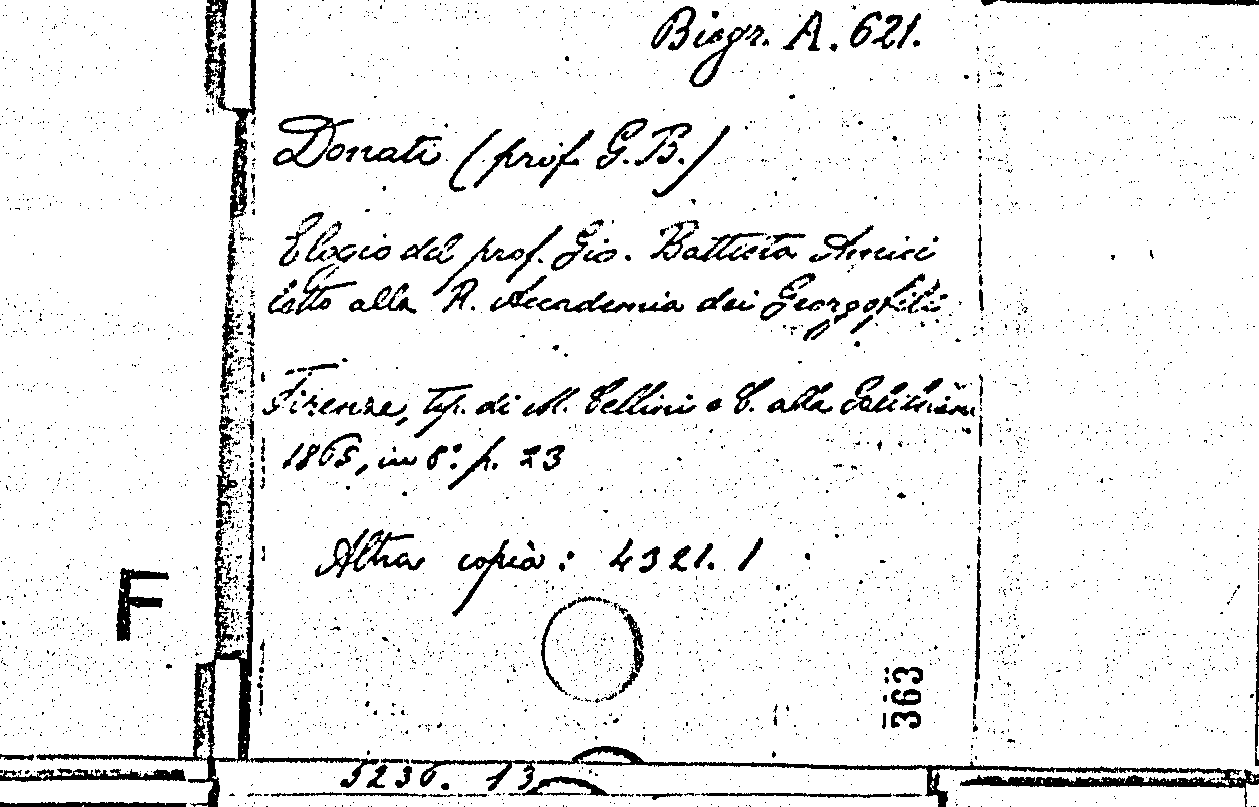 Biogr. A. 621.
Donati (prof. G.B.)
Elogio del prof. Gio. Battista Amici
letto alla R. Accademia dei Georgofili
Firenze, tip. di M. Cellini e C. alla Galileiana
1865, in 8º. p. 23
Altra copia: 4321. 1
F
363
5236. 13